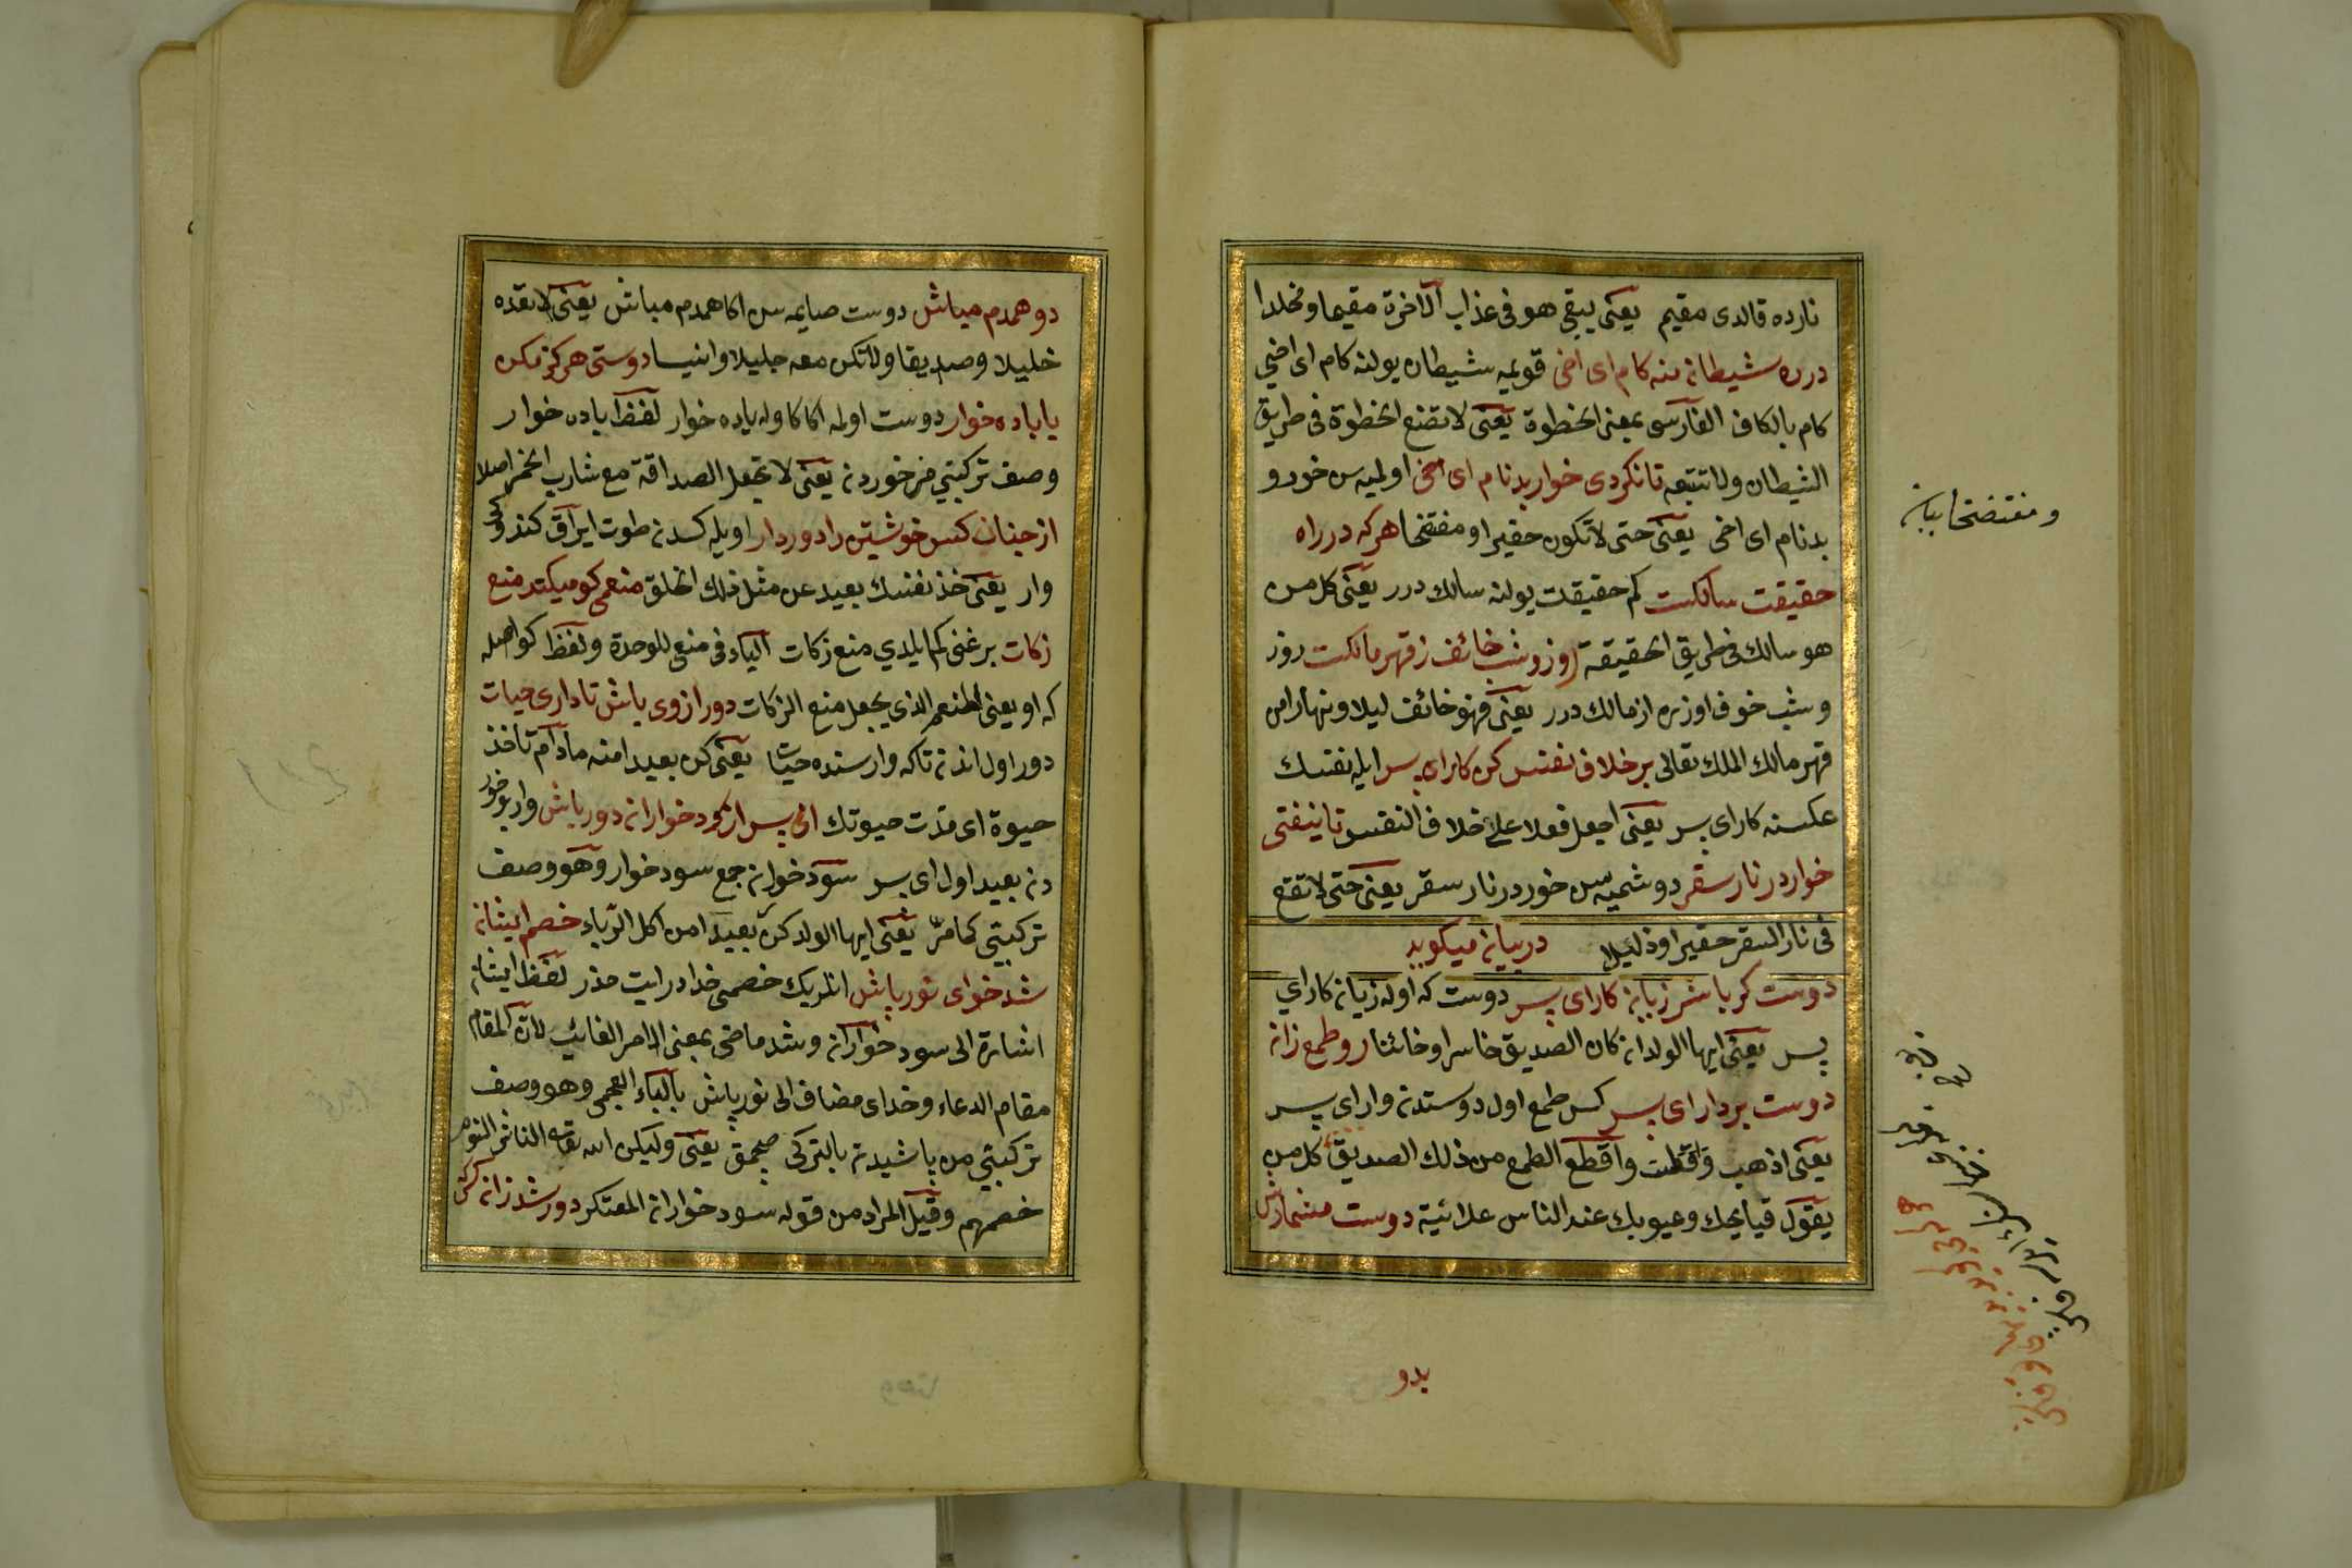 نارده قالدى مقيم يعنى يبقى هو فى عذاب الآخرة مقيما ومخلدا
در ره شيطان منه كام اى اخى قويمه شيطان يولنه كام اى اخي
كام بالكاف الفارسى بمعنى الخطوة يعنى لا تضع الخطوة فى طريق
الشيطان ولا تتبعه تا نكردى خوار بدنام اى اخى اولميه سن خور و
بدنام اى اخى يعنى حتى لا تكون حقيرا و مفتخا هر كه در راه
حقيقت سالكست كم حقيقت يولنه سالك درر يعنى كل من
هو سالك فى طريق الحقيقة روز و شب خائف ز قهر مالكست روز
وشب خوف اوزره از مالك درر يعنى فهو خائف ليلا ونهارا من
قهر مالك الملك تعالى بر خلاف نفس كن كار اى پسر ايله نفسك
عكسنه كار اى پسر يعنى اجعل فعلا على خلاف النفس تا نيفتى
خوار در نار سقر دوشميه سن خور در نار سقر يعنى حتى لا تقع
فى نار السقر حقيرا وذليلا در بيان ميكويد
دوست كر باشد زيان كار اى پسر دوست كه اوله زيان كار اي
پسر يعنى ايها الولد ان كان الصديق خاسرا وخائنا رو طمع زان
دوست بردار اى پسر كس طمع اول دوستدن وار اى پسر
يعنى اذهب واقطع الطمع من ذلك الصديق كل من
يقول قبايحك وعيوبك عند الناس علانية دوست مشمارش
ومفتضحا بيان
بدو
دو همدم مباش دوست صايمه سن اكا همدم مباش يعنى لا تعده
خليلا وصديقا ولا تكن معه جليلا وانيسا دوستى هركز مكن
با باده خوار دوست اولمه اكا كا وله باده خوار لفظ باده خوار
وصف تركيبي من خوردن يعنى لا تجعل الصداقة مع شارب الخمر اصلا
از چنان كس خويشتن را دور دار اويله كسدن طوت ايراق كندوكى
وار يعنى خذ نفسك بعيد عن مثل ذلك الخلق منعمى كو ميكند منع
زكات بر غنى كم ايلدي منع زكات الياء فى منعمى للوحدة ولفظ كو اصله
كه او يعنى المنعم الذى يجعل منع الزكات دور از وى باش تا دارى حيات
دور اول اندن تا كه وار سنده حيات يعنى كن بعيدا منه ما دام تأخذ
حيوة اى مدت حيوتك اى پسر از سود خواران دور باش وار يوخور
دن بعيد اول اى پسر سود خواران جمع سود خوار وهو وصف
تركيبتى كما مرّ يعنى ايها الولد كن بعيدا من اكل الرباء خصم ايشان
شد خداى نور پاش انلريك خصمى خدادر ايت حذر لفظ ايشان
اشارة الى سود خواران وشد ماضى بمعنى الامر الغائب لان المقام
مقام الدعاء وخداى مضاف الى نور پاش بالباء العجمى وهو وصف
تركيبتي من پاشيدن بالتركى صچمق يعنى وليكن الله تعالى الناشر النور
خصمهم وقيل المراد من قوله سود خواران المعتكر دور شد زان كس